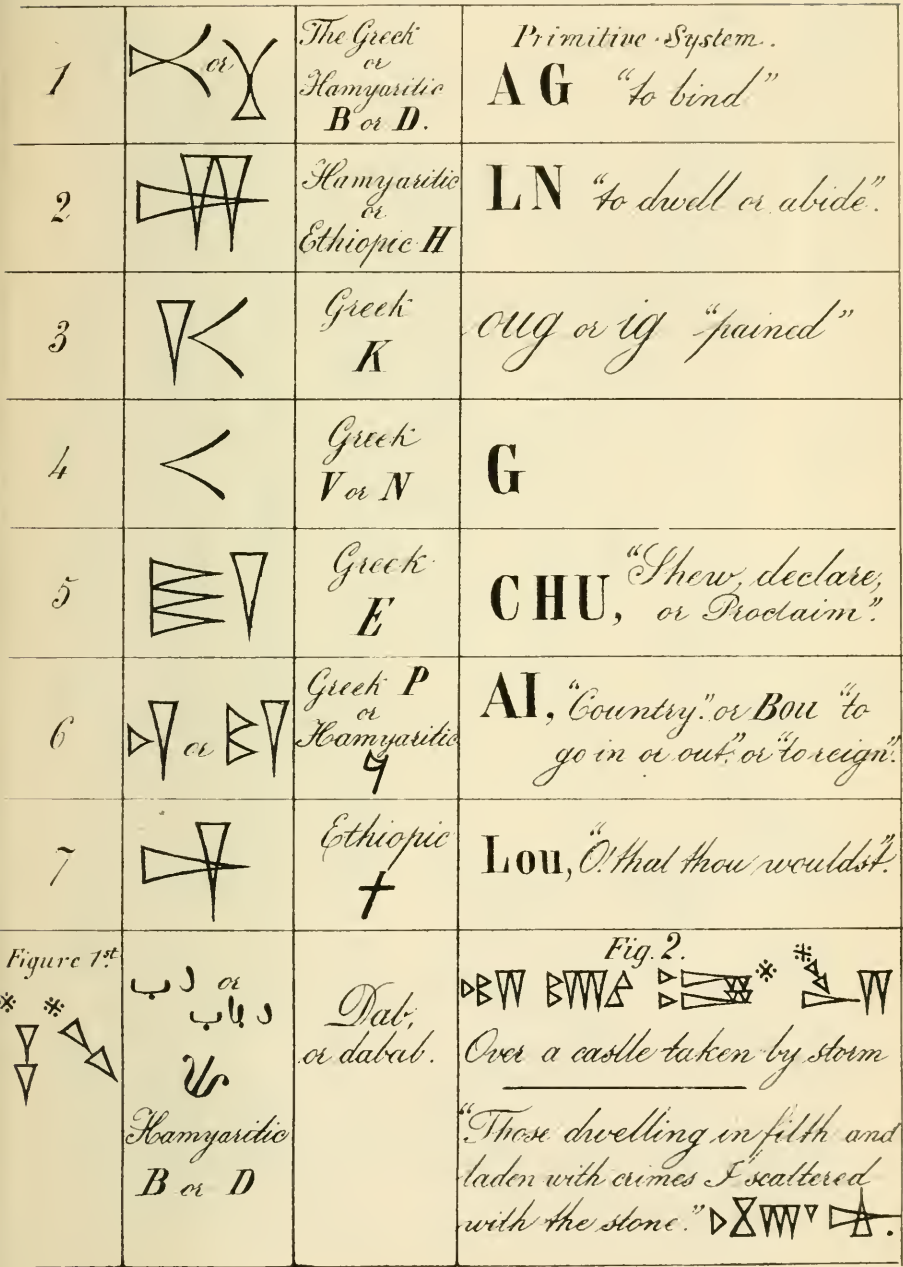 Primitive System.
1
or
The Greek
or
Hamyaritic
B or D.
A G "to bind"
2
Hamyaritic
or
Ethiopic H
LN "to dwell or abide".
3
Greek
K
oug or ig "pained"
4
Greek
V or N
G
5
Greek
E
CHU, "Shew, declare,
or Proclaim".
6
or
Greek P
or
Hamyaritic
AI, "Country." or Bou "to
go in or out." or "to reign".
7
Ethiopic
Lou, "O! that thou wouldst".
Figure 1st.
دب or
دباب
Hamyaritic
B or D
Dab,
or dabab.
Fig. 2.
Over a castle taken by storm
"Those dwelling in filth and
laden with crimes I scattered
with the stone."